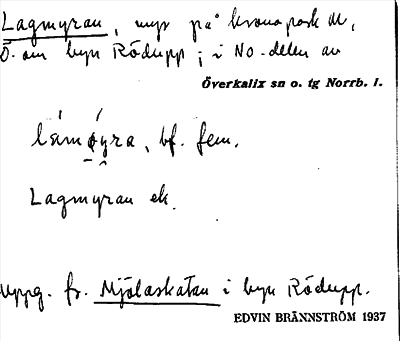 Lagmyran, myr på kronopark M,
Ö. om byn Rödupp; i NO-delen av
Överkalix sn o. tg Norrb. l.
lámøyra, bf. fem.
Lagmyran ek.
Uppg. fr. Mjölaskatan i byn Rödupp.
EDVIN BRÄNNSTRÖM 1937